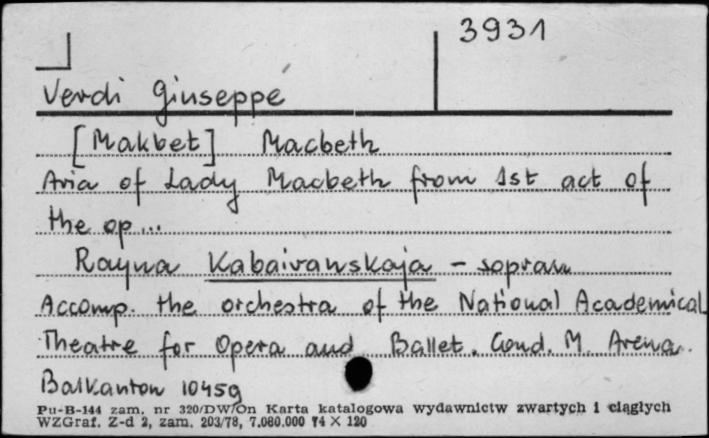 3931
Verdi Giuseppe
[Makbet] Macbeth
Aria of Lady Macbeth from 1st act of
the op...
Rayna Kabaivanskaja - sopran
Accomp. the orchestra of the National Academical
Theatre for Opera and Ballet. Cond. M. Arena.
Balkanton 10459
Pu-B-144 zam. nr 320/DW/On Karta katalogowa wydawnictw zwartych i ciągłych
WZGraf. Z-d 2, zam. 203/78, 7.080.000 74 X 120